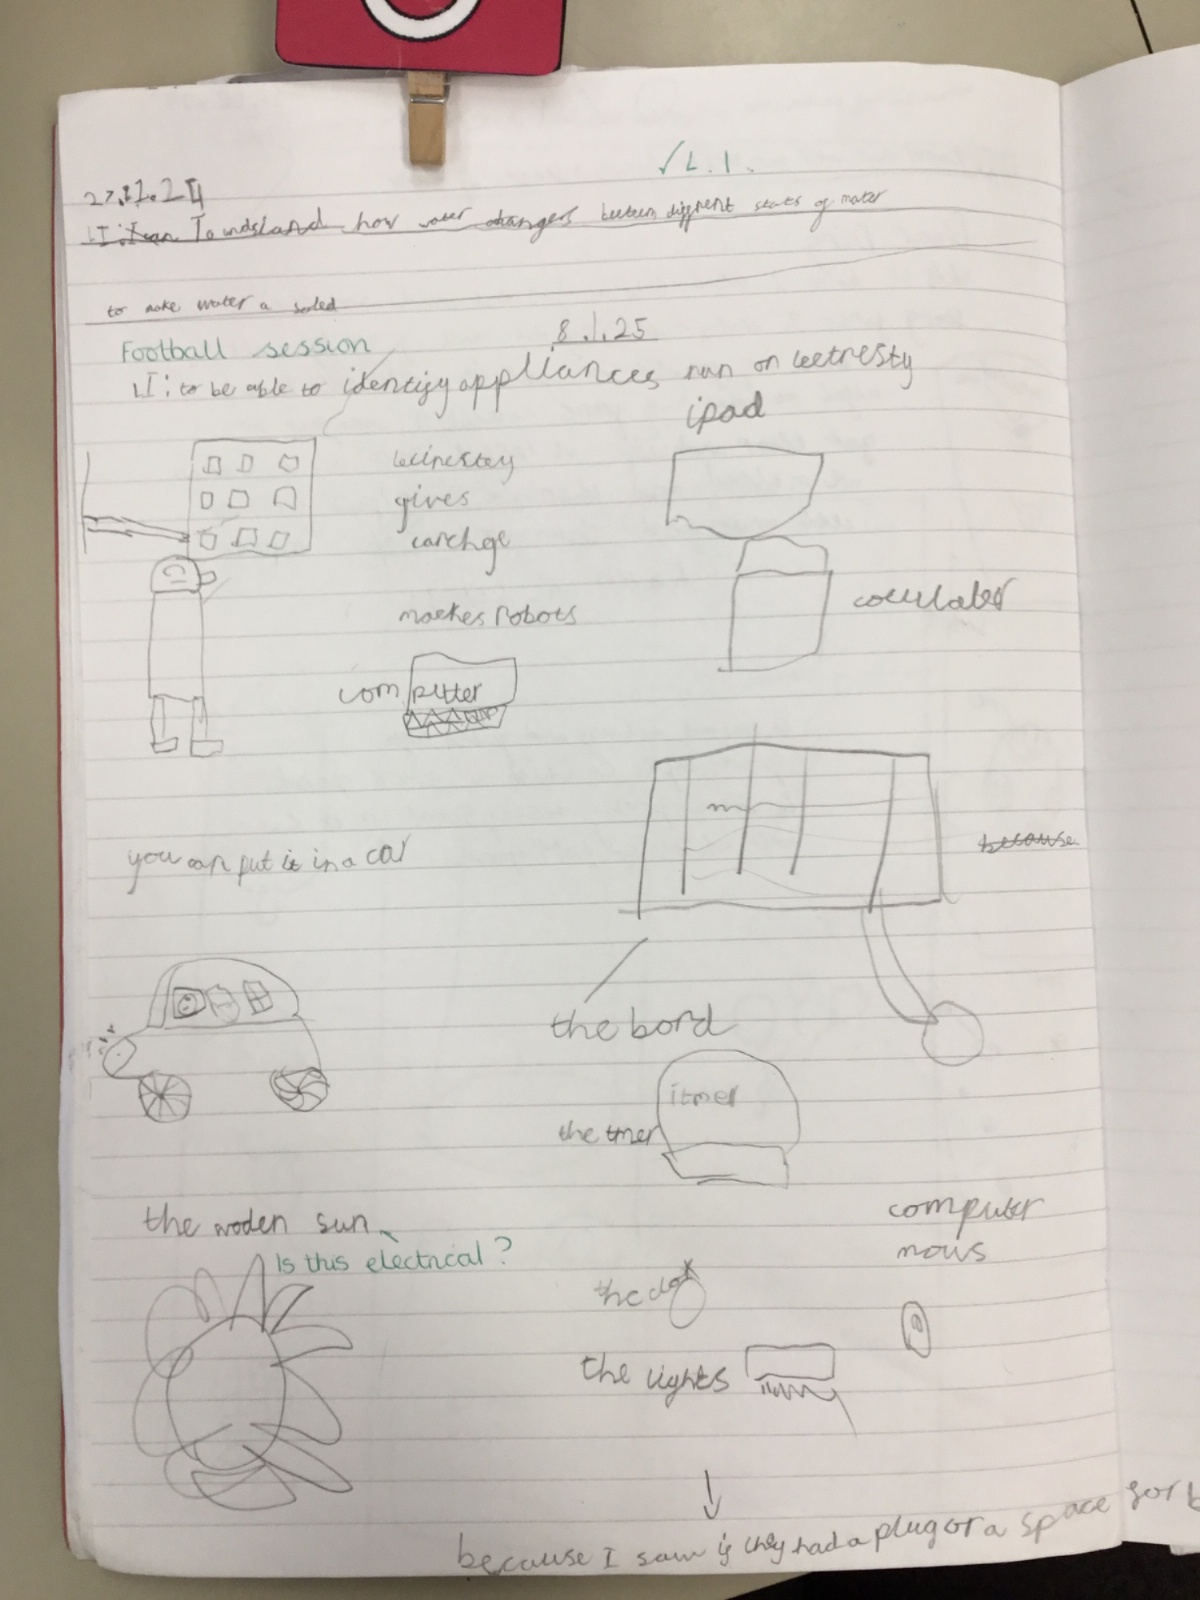 ✓ L.I.
27.11.24
LI: I can To undstand how water changes between diffrent stats of mater
to make water a soled
Football session
8.1.25
LI: to be able to identify appliances run on
ipad
gives
makes robots
computter
you can put it in a car
because
the bord
itmer
the tmer
the woden sun
Is this electrical?
computer
mows
the clok
the lights
because I saw if they had a plug or a space for b